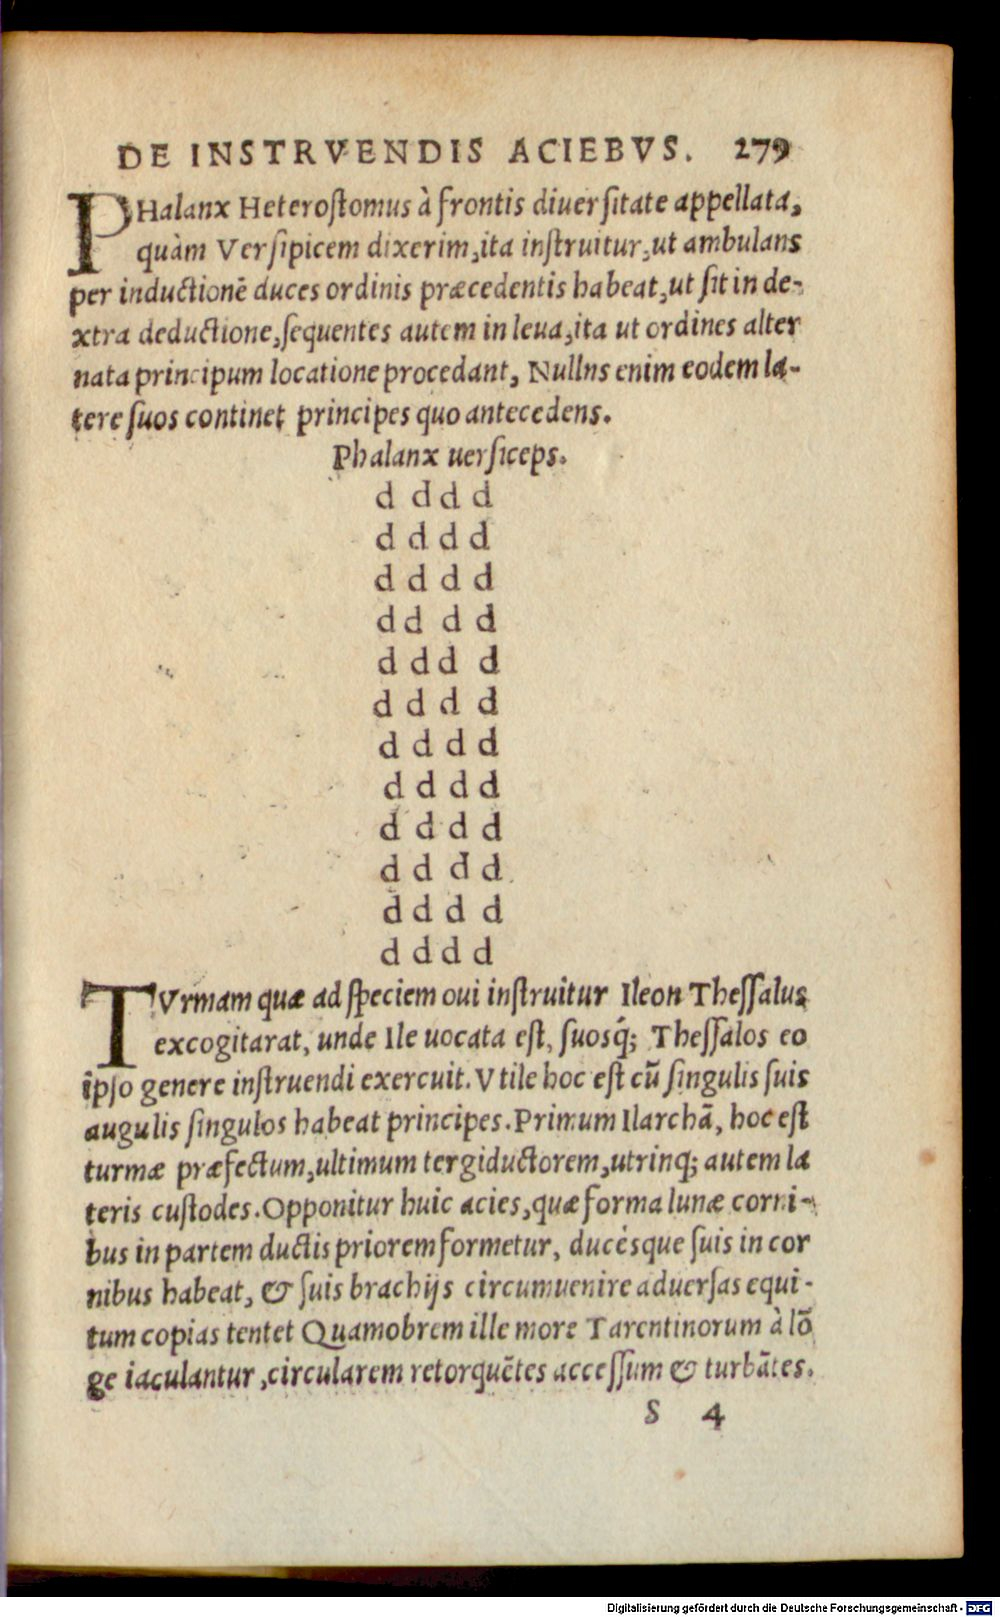 DE INSTRVENDIS ACIEBVS. 279
PHalanx Heterostomus à frontis diuersitate appellata,
quàm Versipicem dixerim, ita instruitur, ut ambulans
per inductionē duces ordinis præcedentis habeat, ut sit in de-
xtra deductione, sequentes autem in leua, ita ut ordines alter
nata principum locatione procedant, Nullns enim eodem la-
tere suos continet principes quo antecedens.
Phalanx uersiceps.
d d d d
d d d d
d d d d
d d d d
d d d d
d d d d
d d d d
d d d d
d d d d
d d d d
d d d d
d d d d
TVrmam quæ ad speciem oui instruitur Ileon Thessalus
excogitarat, unde Ile uocata est, suosq́; Thessalos eo
ipso genere instruendi exercuit. Vtile hoc est cū singulis suis
augulis singulos habeat principes. Primum Ilarchā, hoc est
turmæ præfectum, ultimum tergiductorem, utrinq; autem la
teris custodes. Opponitur huic acies, quæ forma lunæ corni-
bus in partem ductis priorem formetur, ducésque suis in cor
nibus habeat, & suis brachijs circumuenire aduersas equi-
tum copias tentet Quamobrem ille more Tarentinorum à lō
ge iaculantur, circularem retorquētes accessum & turbātes.
S 4
Digitalisierung gefördert durch die Deutsche Forschungsgemeinschaft - DFG